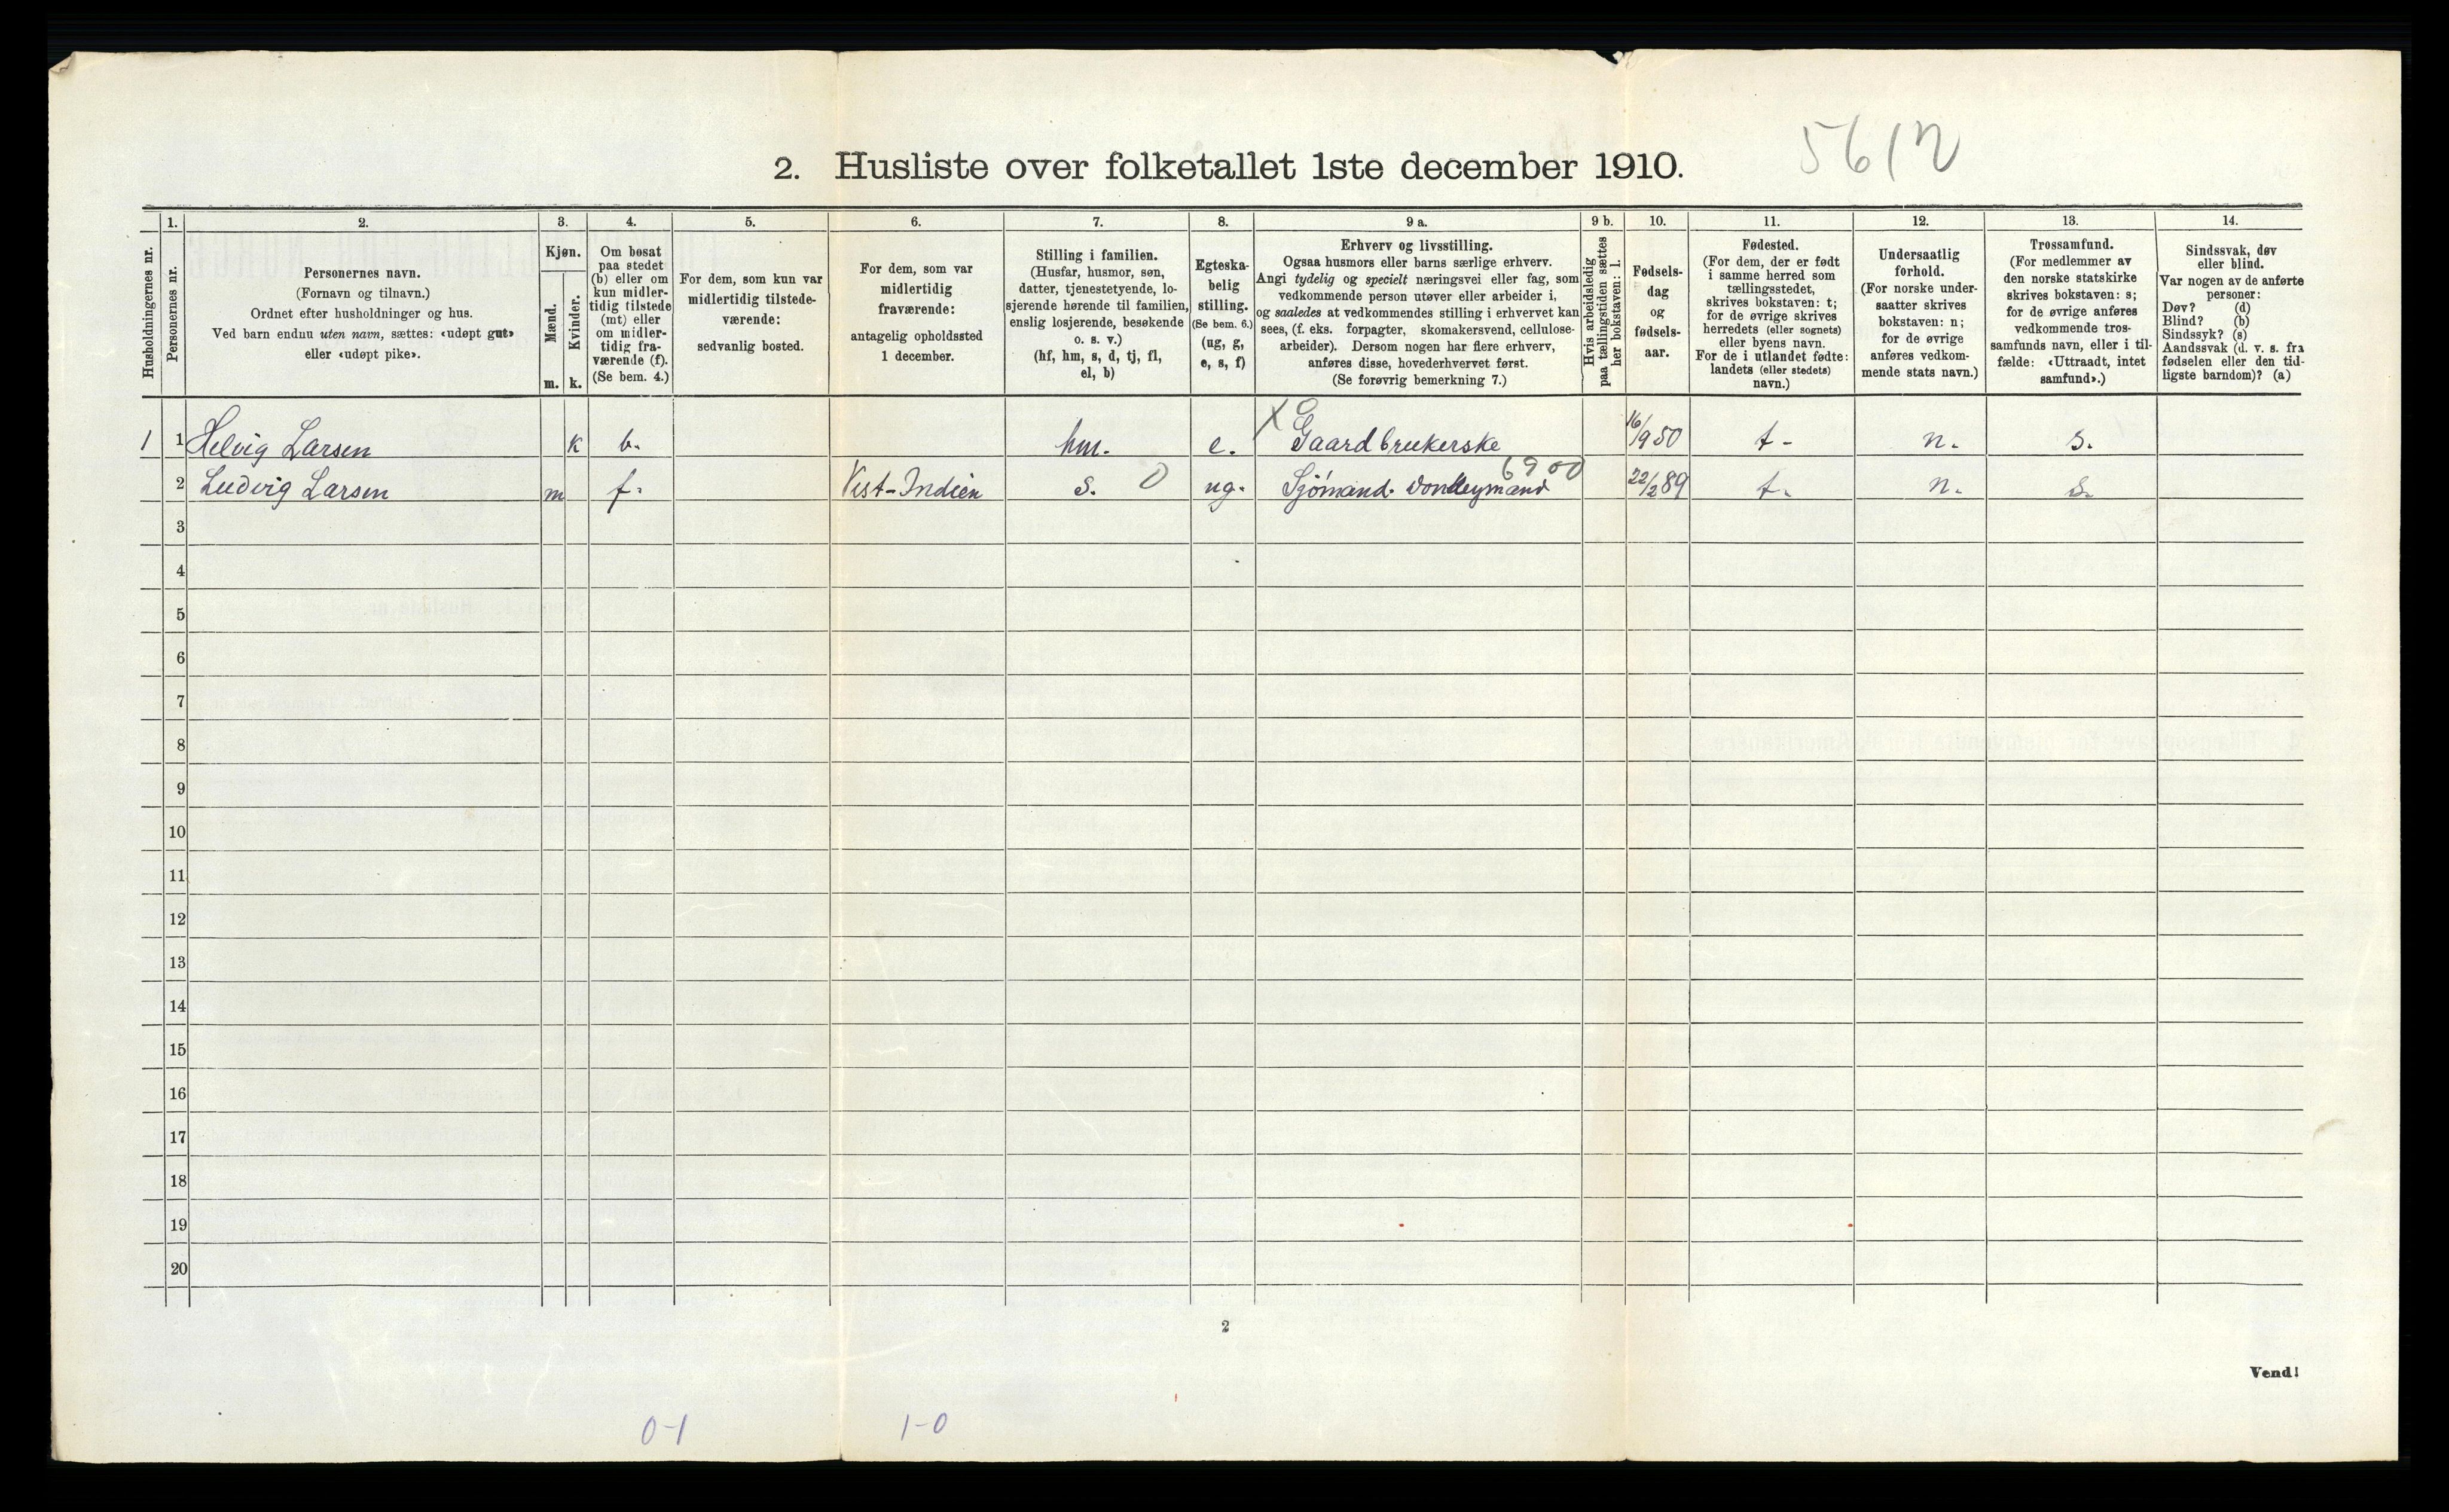 5612
2. Husliste over folketallet 1ste december 1910.
1. 2. 3. 4. 5. 6. 7. 8. 9 a. 9 b. 10. 11. 12. 13. 14.
Husholdningernes nr.
Personernes nr.
Personernes navn.
(Fornavn og tilnavn.)
Ordnet efter husholdninger og hus.
Ved barn endnu uten navn, sættes: «udøpt gut»
eller «udøpt pike».
Kjøn.
Mænd.
Kvinder.
m. k.
Om bosat
paa stedet
(b) eller om
kun midler-
tidig tilstede
(mt) eller
om midler-
tidig fra-
værende (f).
(Se bem. 4.)
For dem, som kun var
midlertidig tilstede-
værende:
sedvanlig bosted.
For dem, som var
midlertidig
fraværende:
antagelig opholdssted
1 december.
Stilling i familien.
(Husfar, husmor, søn,
datter, tjenestetyende, lo-
sjerende hørende til familien,
enslig losjerende, besøkende
o. s. v.)
(hf, hm, s, d, tj, fl,
el, b)
Egteska-
belig
stilling.
(Se bem. 6.)
(ug, g,
e, s, f)
Erhverv og livsstilling.
Ogsaa husmors eller barns særlige erhverv.
Angi tydelig og specielt næringsvei eller fag, som
vedkommende person utøver eller arbeider i,
og saaledes at vedkommendes stilling i erhvervet kan
sees, (f. eks. forpagter, skomakersvend, cellulose-
arbeider). Dersom nogen har flere erhverv,
anføres disse, hovederhvervet først.
(Se forøvrig bemerkning 7.)
Hvis arbeidsledig
paa tællingstiden sættes
her bokstaven: l.
Fødsels-
dag
og
fødsels-
aar.
Fødested.
(For dem, der er født
i samme herred som
tællingsstedet,
skrives bokstaven: t;
for de øvrige skrives
herredets (eller sognets)
eller byens navn.
For de i utlandet fødte:
landets (eller stedets)
navn.)
Undersaatlig
forhold.
(For norske under-
saatter skrives
bokstaven: n;
for de øvrige
anføres vedkom-
mende stats navn.)
Trossamfund.
(For medlemmer av
den norske statskirke
skrives bokstaven: s;
for de øvrige anføres
vedkommende tros-
samfunds navn, eller i til-
fælde: «Uttraadt, intet
samfund».)
Sindssvak, døv
eller blind.
Var nogen av de anførte
personer:
Døv? (d)
Blind? (b)
Sindssyk? (s)
Aandssvak (d. v. s. fra
fødselen eller den tid-
ligste barndom)? (a)
1 1 Helvig Larsen k b. hm. e. X Gaardbrukerske 16/9 50 t- n. s.
2 Ludvig Larsen m f. Vest-Indien s. 0 ug. Sjømand 6900 22/2 89 t. n. s.
3
4
5
6
7
8
9
10
11
12
13
14
15
16
17
18
19
20
2
Vend!
0-1 1-0